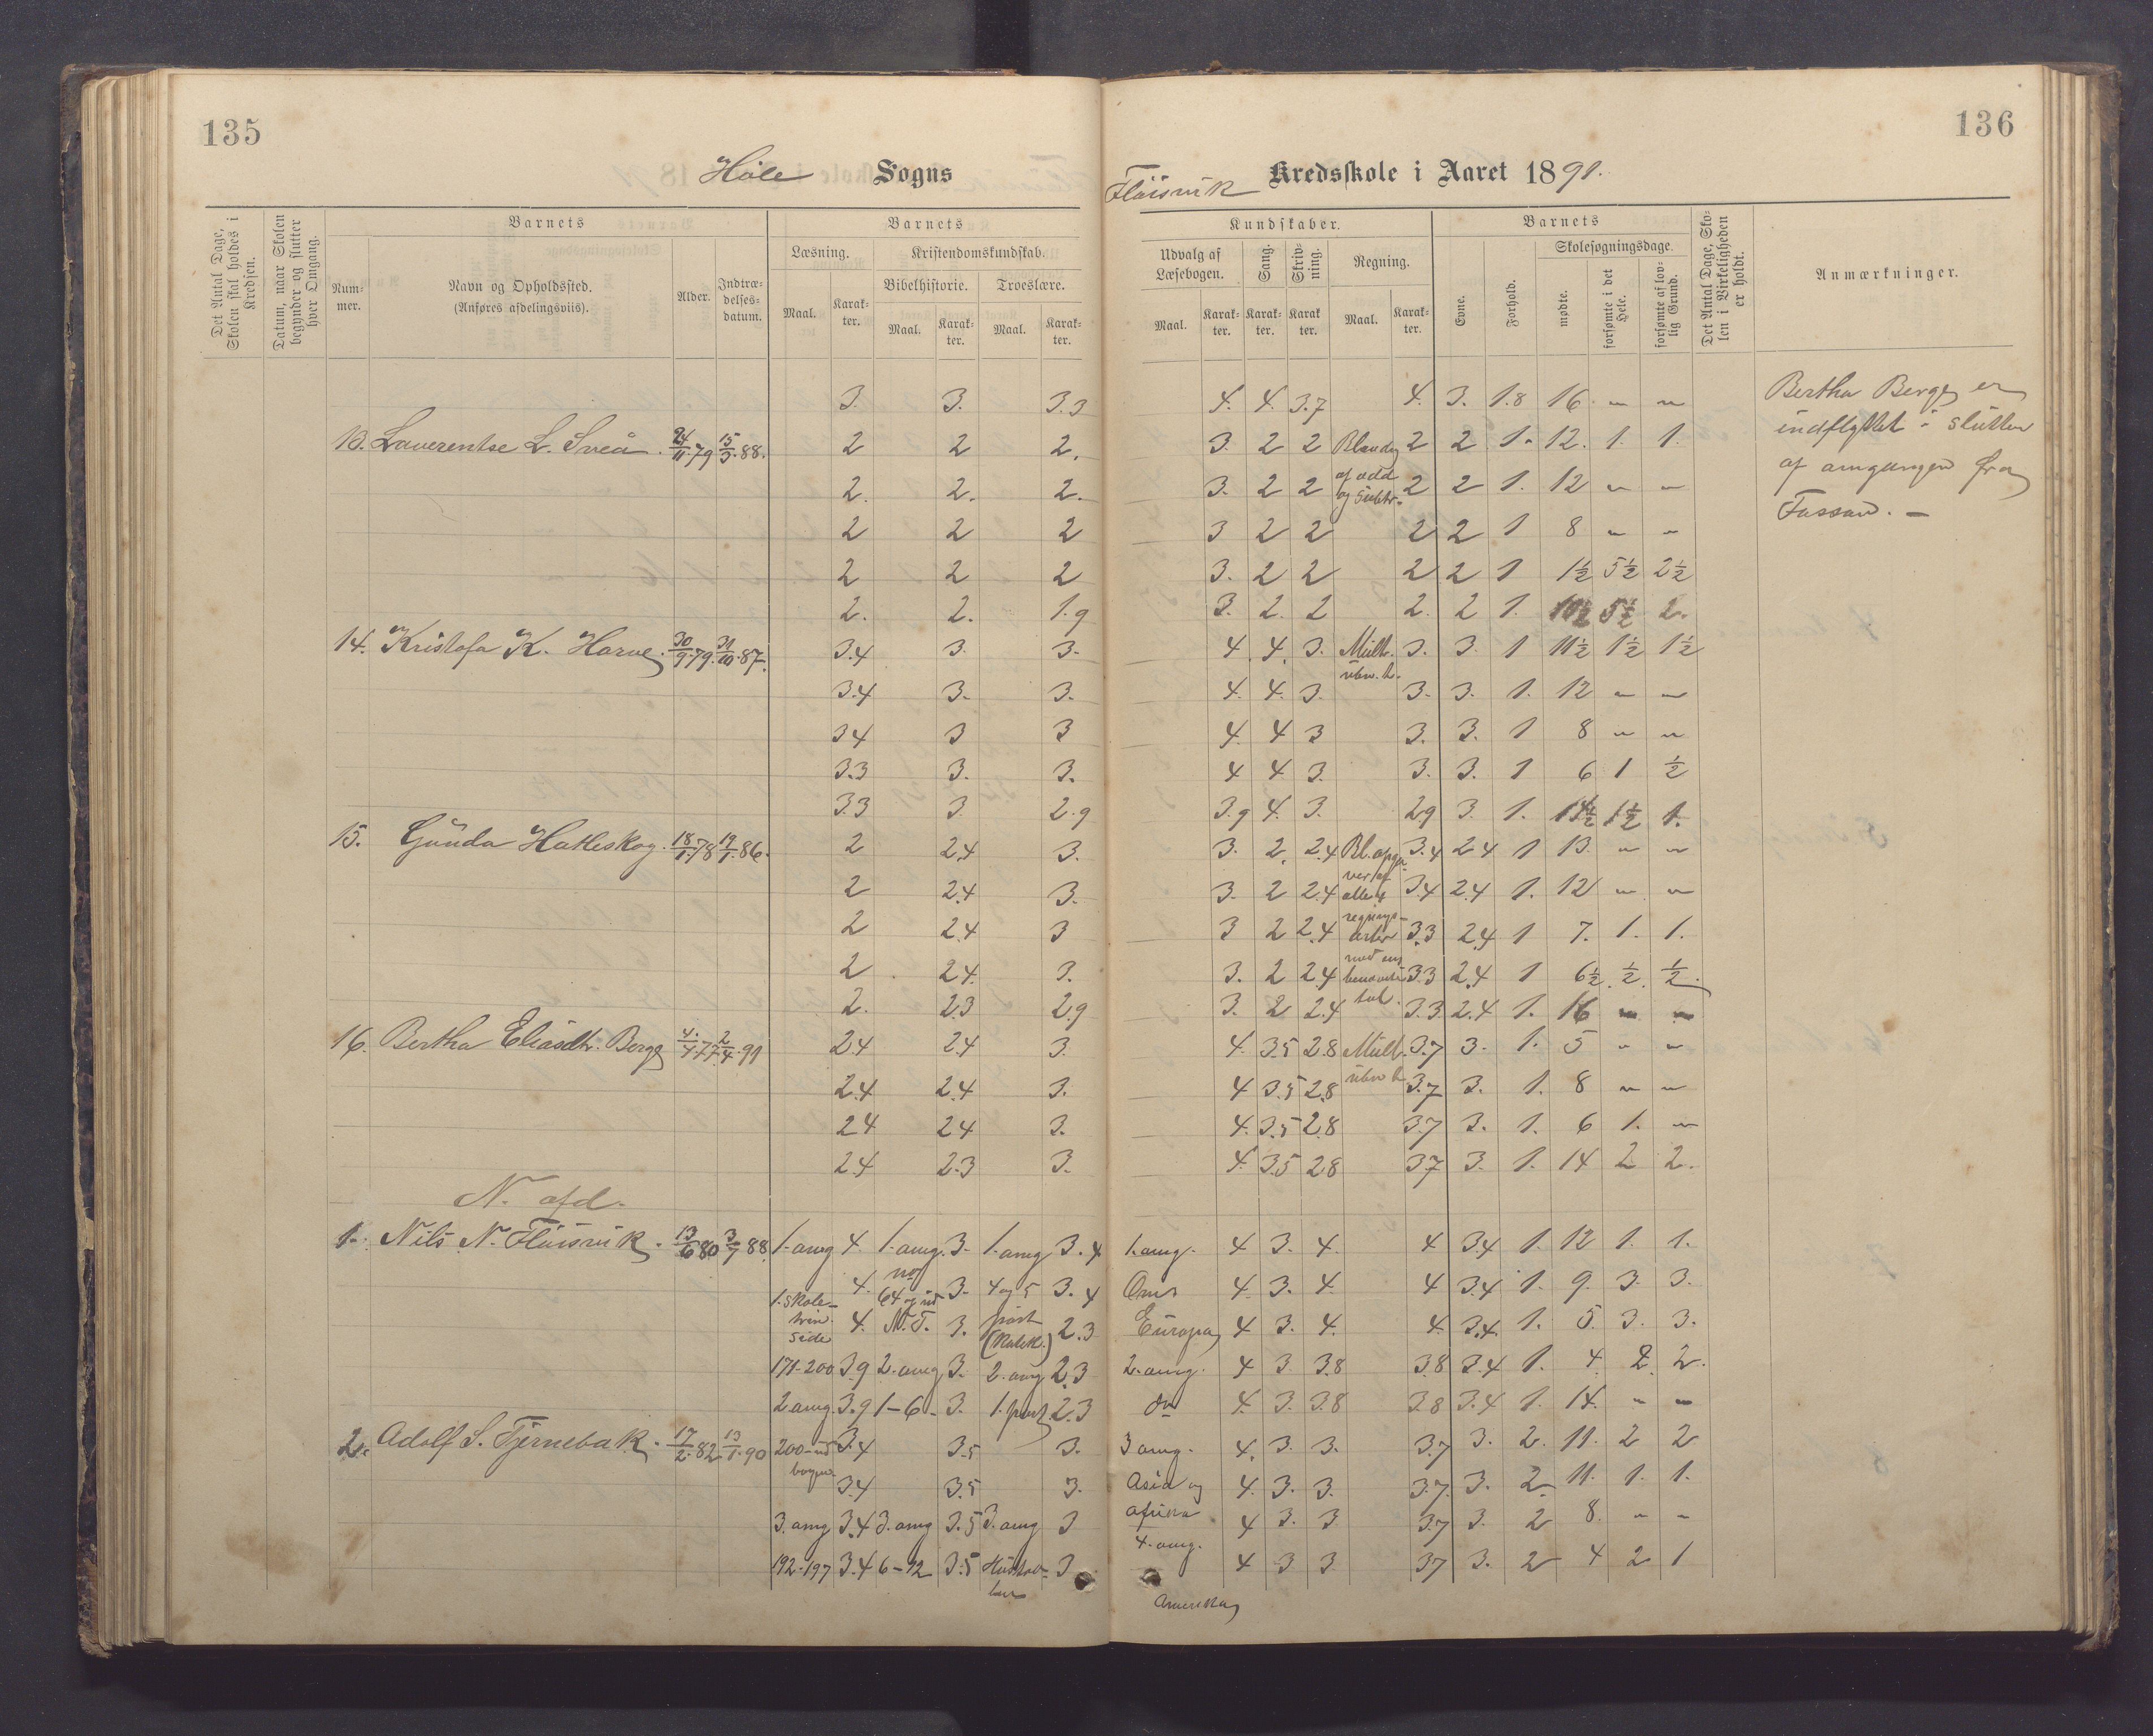 135
136
Høle Sogns
Fløisvik Kredsskole i Aaret 1891.
Det Antal Dage, Skolen skal holdes i Kredsen.
Datum, naar Skolen begynder og slutter hver Omgang.
Barnets
Nummer.
Navn og Opholdssted.
(Anføres afdelingsviis).
Alder.
Indtrædelsesdatum.
Barnets
Læsning.
Maal. Karakter.
Kristendomskundskab.
Bibelhistorie. Troeslære.
Maal. Karakter. Maal. Karakter.
Kundskaber.
Udvalg af Læsebogen.
Maal. Karakter.
Sang. Karakter.
Skrivning. Karakter
Regning.
Maal. Karakter.
Barnets
Evne. Forhold.
Skolesøgningsdage.
mødte. forsømte i det Hele. forsømte af lovlig Grund.
Det Antal Dage, Skolen i Virkeligheden er holdt.
Anmærkninger.
3. 3. 3.3 4. 4. 3.7 4. 3. 1.8 16 " "
13. Laverentse L. Sveå. 24/11.79 15/3.88. 2 2 2. 3. 2 2 Blandg 2 2 1. 12. 1. 1.
2. 2. 2. 3. 2 2 af add og Subtr. 2 2 1. 12 " "
2 2 2 3 2 2 2 2 1 8 " "
2 2 2 3. 2 2 2 2 1 1½ 5½ 2½
2. 2. 1.9 3. 2. 2 2. 2 1. 10½ 5½ 2.
14. Kristofa K. Harve. 30/9.79. 31/10.87. 3.4 3. 3. 4 4. 3. Mult. 3. 3. 1 11½ 1½ 1½
3.4 3. 3. 4. 4. 3. 3. 3. 1. 12 " "
34 3 3 4. 4 3 3. 3. 1 8 " "
3.3 3. 3. 4 4 3. 3. 3. 1 6 1 ½
3.3 3. 2.9 3.9 4. 3. 29 3. 1. 14½ 1½ 1.
15. Gunda Hatleskog. 18/1.78 19/1.86. 2 2.4 3. 3. 2. 2.4 Bl. opga 3.4 24 1 13. " "
2 2.4 3. 3. 2 2.4 ver af alle 4 3.4 2.4 1. 12 " "
2 2.4 3 3 2 2.4 regningsarter 3.3 2.4 1 7. 1. 1.
2 24. 3. 3. 2 24 med 3.3 2.4 1 6½ ½ ½.
2. 2.3 2.9 3. 2 2.4 tal. 3.3 2.4 1. 16 " "
16. Bertha Eliasdtr. Berge 4/4.77 2/4.91 24 2.4 3. 4. 3.5 28 Mult. 3.7 3. 1. 5 " "
2.4 2.4 3. 4 3.5 2.8 3.7 3. 1. 8 " "
24 24 3. 4. 3.5 2.8 3.7 3. 1. 6 1. "
2.4 2.3 3. 4. 3.5 28 3.7 3. 1. 14 2 2.
N. afd.
1. Nils N. Fløisvik. 13/6 80 3/7 88. 1. omg 4. 1. omg. 3. 1. omg 3.4 1. omg. 4 3. 4. 4 3.4 1. 12 1. 1.
1. Skole- 4. no 64 og ud 3. 4 og 5 3.4 Oms 4. 3. 4. 4 3.4 1. 9. 3. 3.
side 4. N.T. 3. part 2.3 Europa 4 3. 4. 4. 3.4. 1. 5. 3. 3.
171-200 3.9 2. omg 3. 2. omg 2.3 2. omg. 4 3 3.8 3.8 3.4 1. 4 2. 2.
2 omg. 3.9 1-6- 3. 1. part 2.3 do 4. 3. 3.8 3.8 3.4 1. 14. " "
2. Adolf S. Tjernebak. 17/2.82 13/1.90 200-ud bogen 3.4 3.5 3. 3 omg. 4. 3. 3. 3.7 3. 2. 11. 2 2
3.4 3.5 3. Asia og 4. 3. 3. 3.7. 3. 2. 11. 1. 1.
3. omg 3.4 3. omg 3.5 3. omg 3 afrika 4 3. 3 3.7 3. 2 8. " "
192-197 3.4 6-12 3.5 Hustavlen 3 4. omg. 4 3 3 37 3. 2 4 2 1
Amerika
Bertha Berge er
indflyttet i slutten
af omgangen fra
Fossan. -